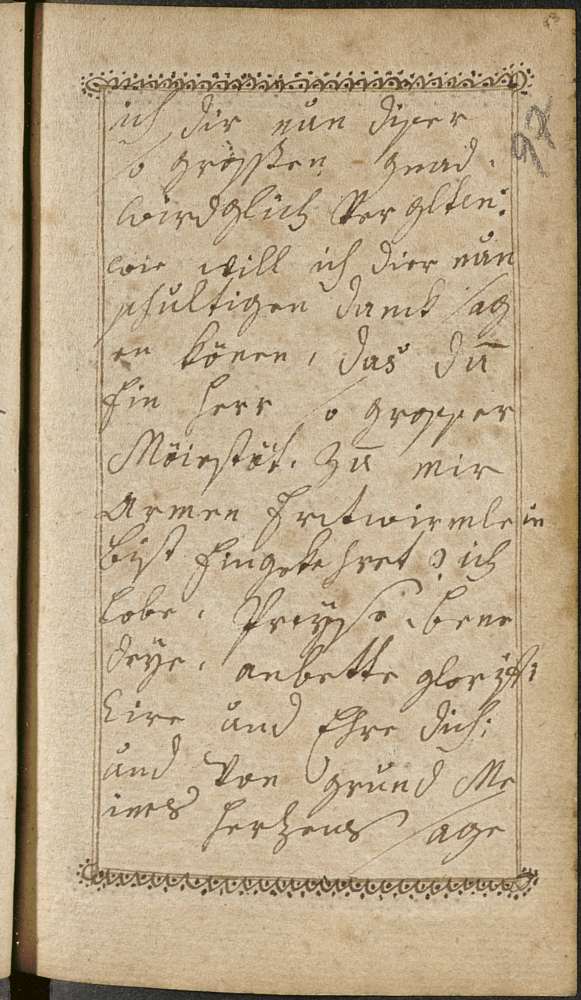 93
97
ich dir nun dißer
so grossen gnad,
wirdglich Vergelten:
wie will ich dier nun
schultigen danck sag
en könen, das dū
Ein Herr so grosser
Möiestöt. zū mir
Armen Erttwirmlein
bist Eingekehret? ich
lobe, Preyse, bene
deye, anbette gloryfi
Cire und Ehre dich:
und Von grund Me
ines Hertzens sage